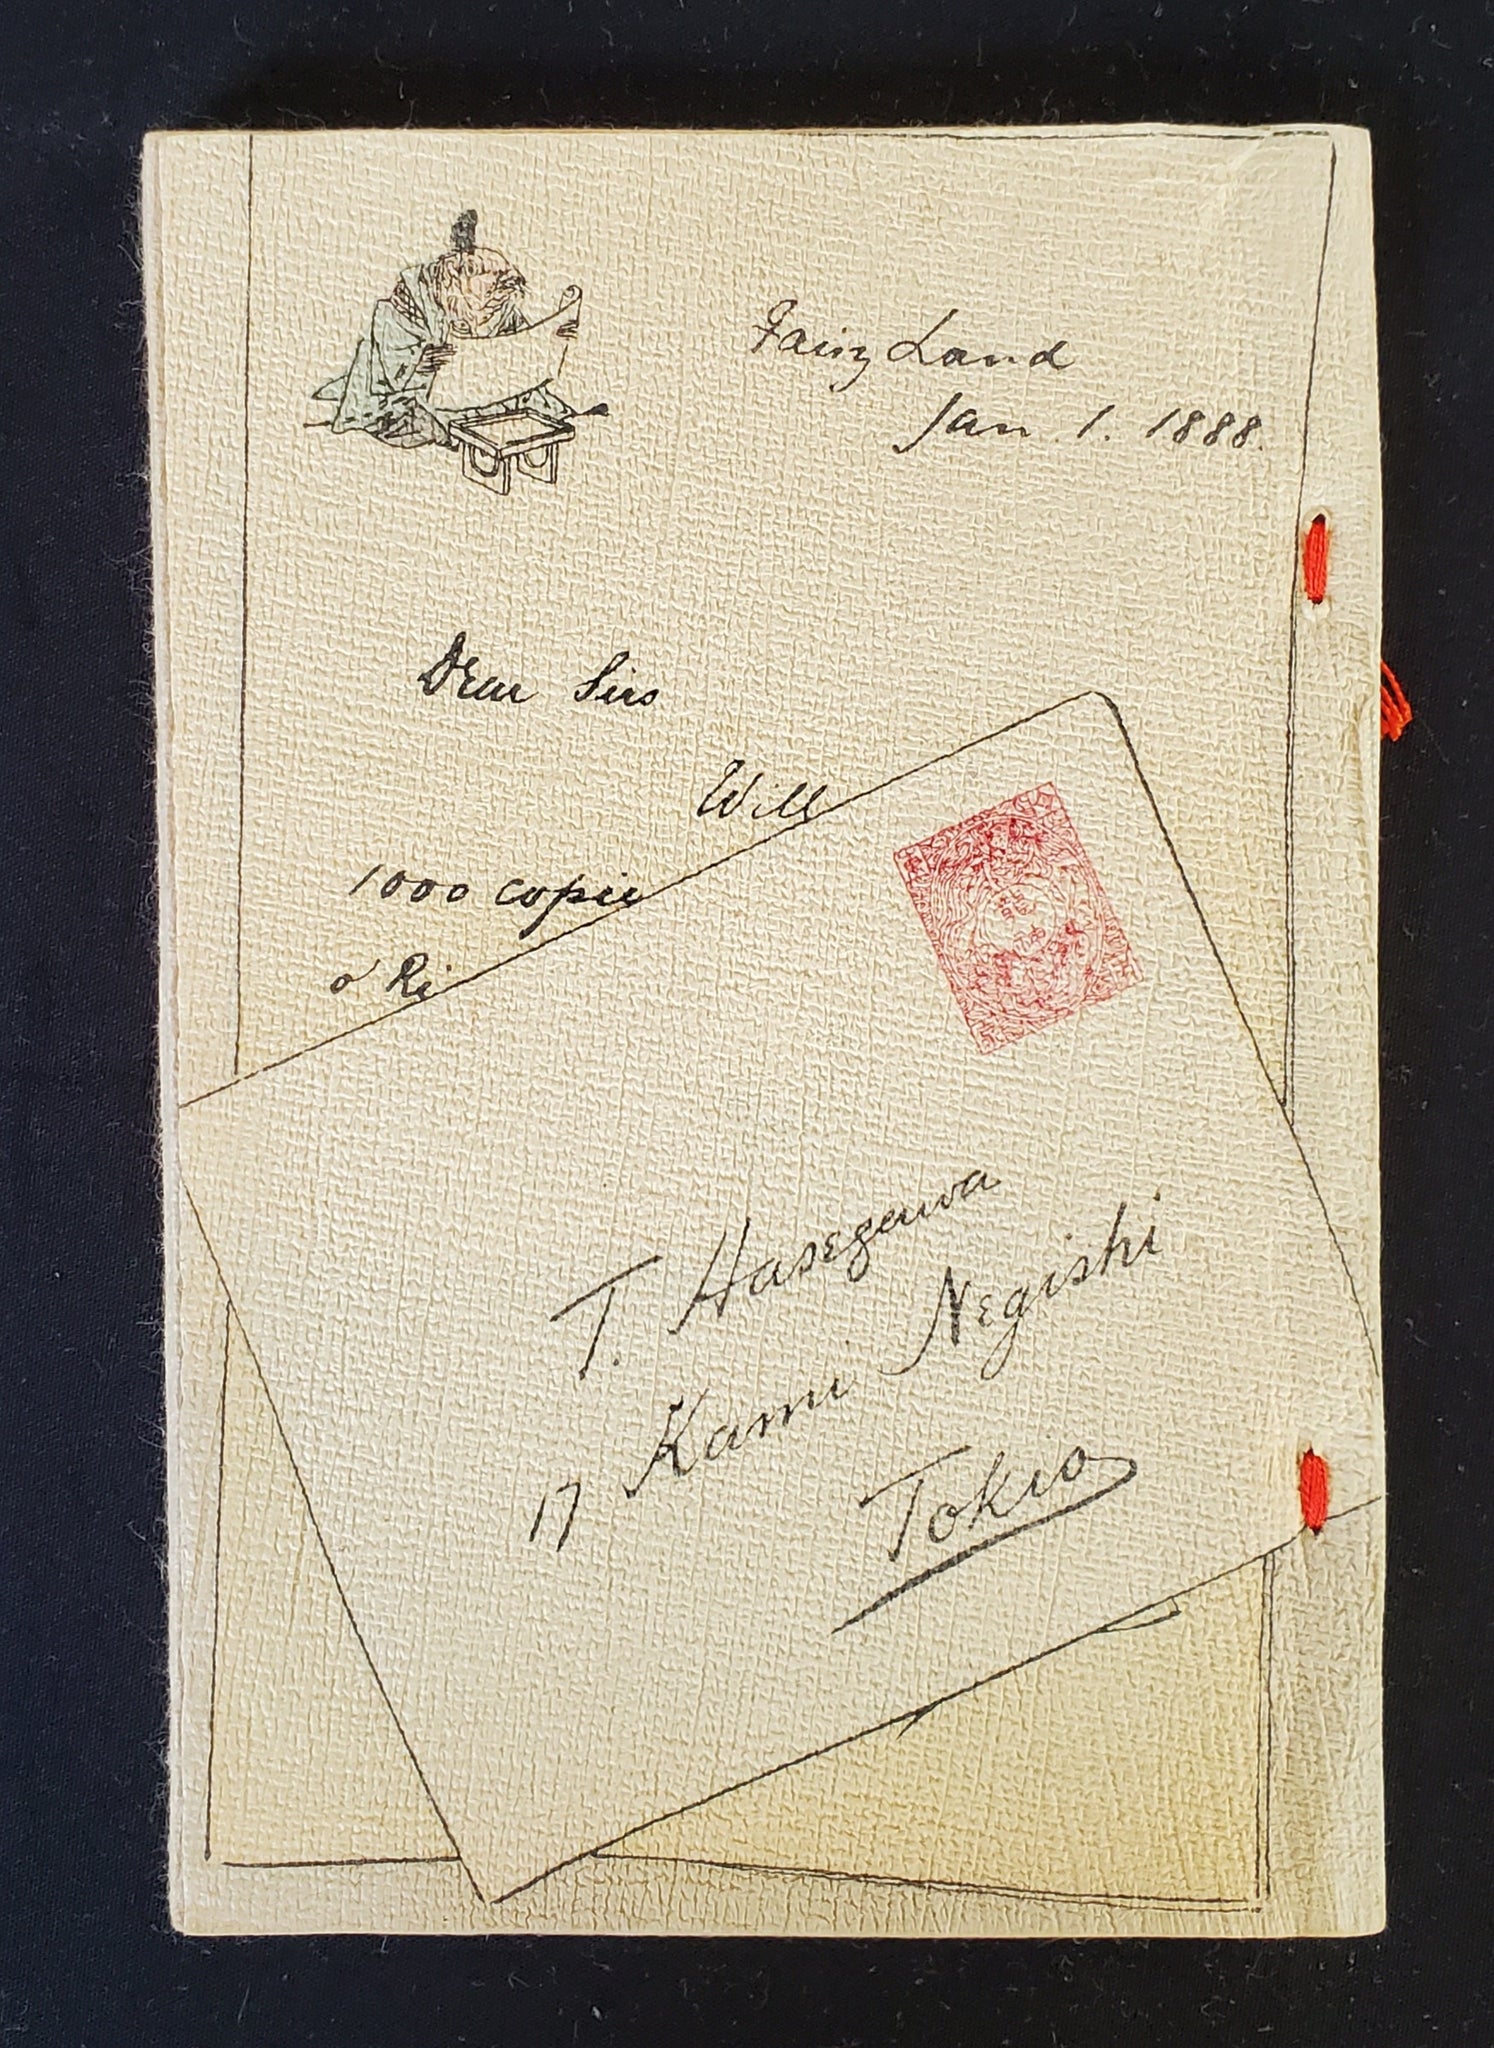 Fairy Land
Jan. 1. 1888.
Dear Sirs
Will
1000 copie
o' Ri
T. Hasegawa
17 Kami Negishi
Tokio